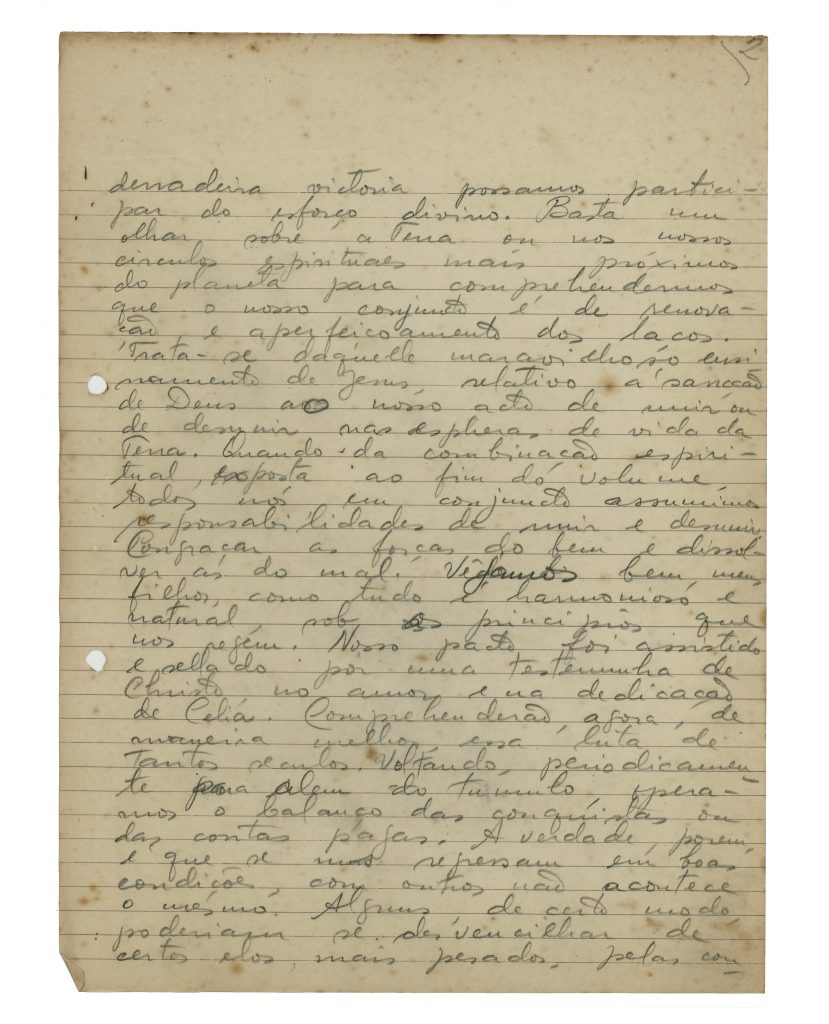 2
derradeira victoria possamos partici-
par do esforço divino. Basta um
olhar sobre a Terra ou nos nossos
circulos espirituaes mais próximos
do planeta para comprehendermos
que o nosso conjuncto é de renova-
ção e aperfeiçoamento dos laços.
Trata-se daquelle maravilhoso ensi
namento de Jesus, relativo á sancção
de Deus ao nosso acto de unir ou
de desunir nas espheras de vida da
Terra. Quando da combinação espiri-
tual, exposta ao fim do volume,
todos nós em conjuncto assumimos
responsabilidades de unir e desunir
Congraçar as forças do bem e dissol-
ver as do mal. Vêjamos bem, meus
filhos, como tudo é harmonioso e
natural, sob os principios que
nos regem. Nosso pacto foi assistido
e sellado por uma testemunha de
Christo no amor e na dedicação
de Celia. Comprehenderão, agora, de
maneira melhor, essa luta de
tantos seculos. Voltando, periodicamen-
te para alem do tumulo opera-
mos o balanço das conquistas ou
das contas pagas. A verdade, porem,
é que se uns regressam em boas
condições, com outros não acontece
o mesmo. Alguns, de certo modo,
poderiam se desvencilhar de
certos elos, mais pesados, pelas con-